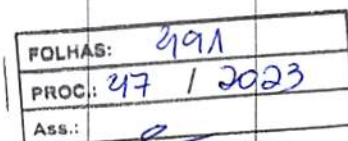 FOLHAS: 491
PROC.: 47 / 2023
Ass.: